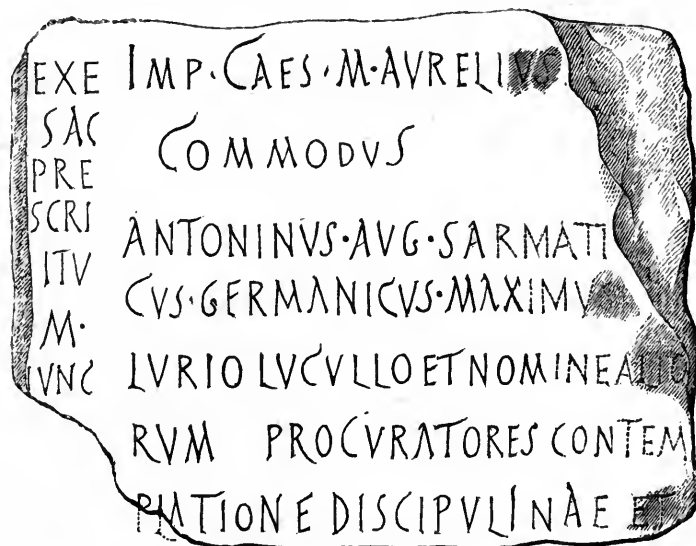 EXE
SAC
PRE
SCRI
ITV
M·
IVNC
IMP·CAES·M·AVRELIVS
COMMODVS
ANTONINVS·AVG·SARMATI
CVS·GERMANICVS·MAXIMVS
LVRIO LVCVLLO ET NOMINE ALIO
RVM PROCVRATORES CONTEM
PLATIONE DISCIPVLINAE ET